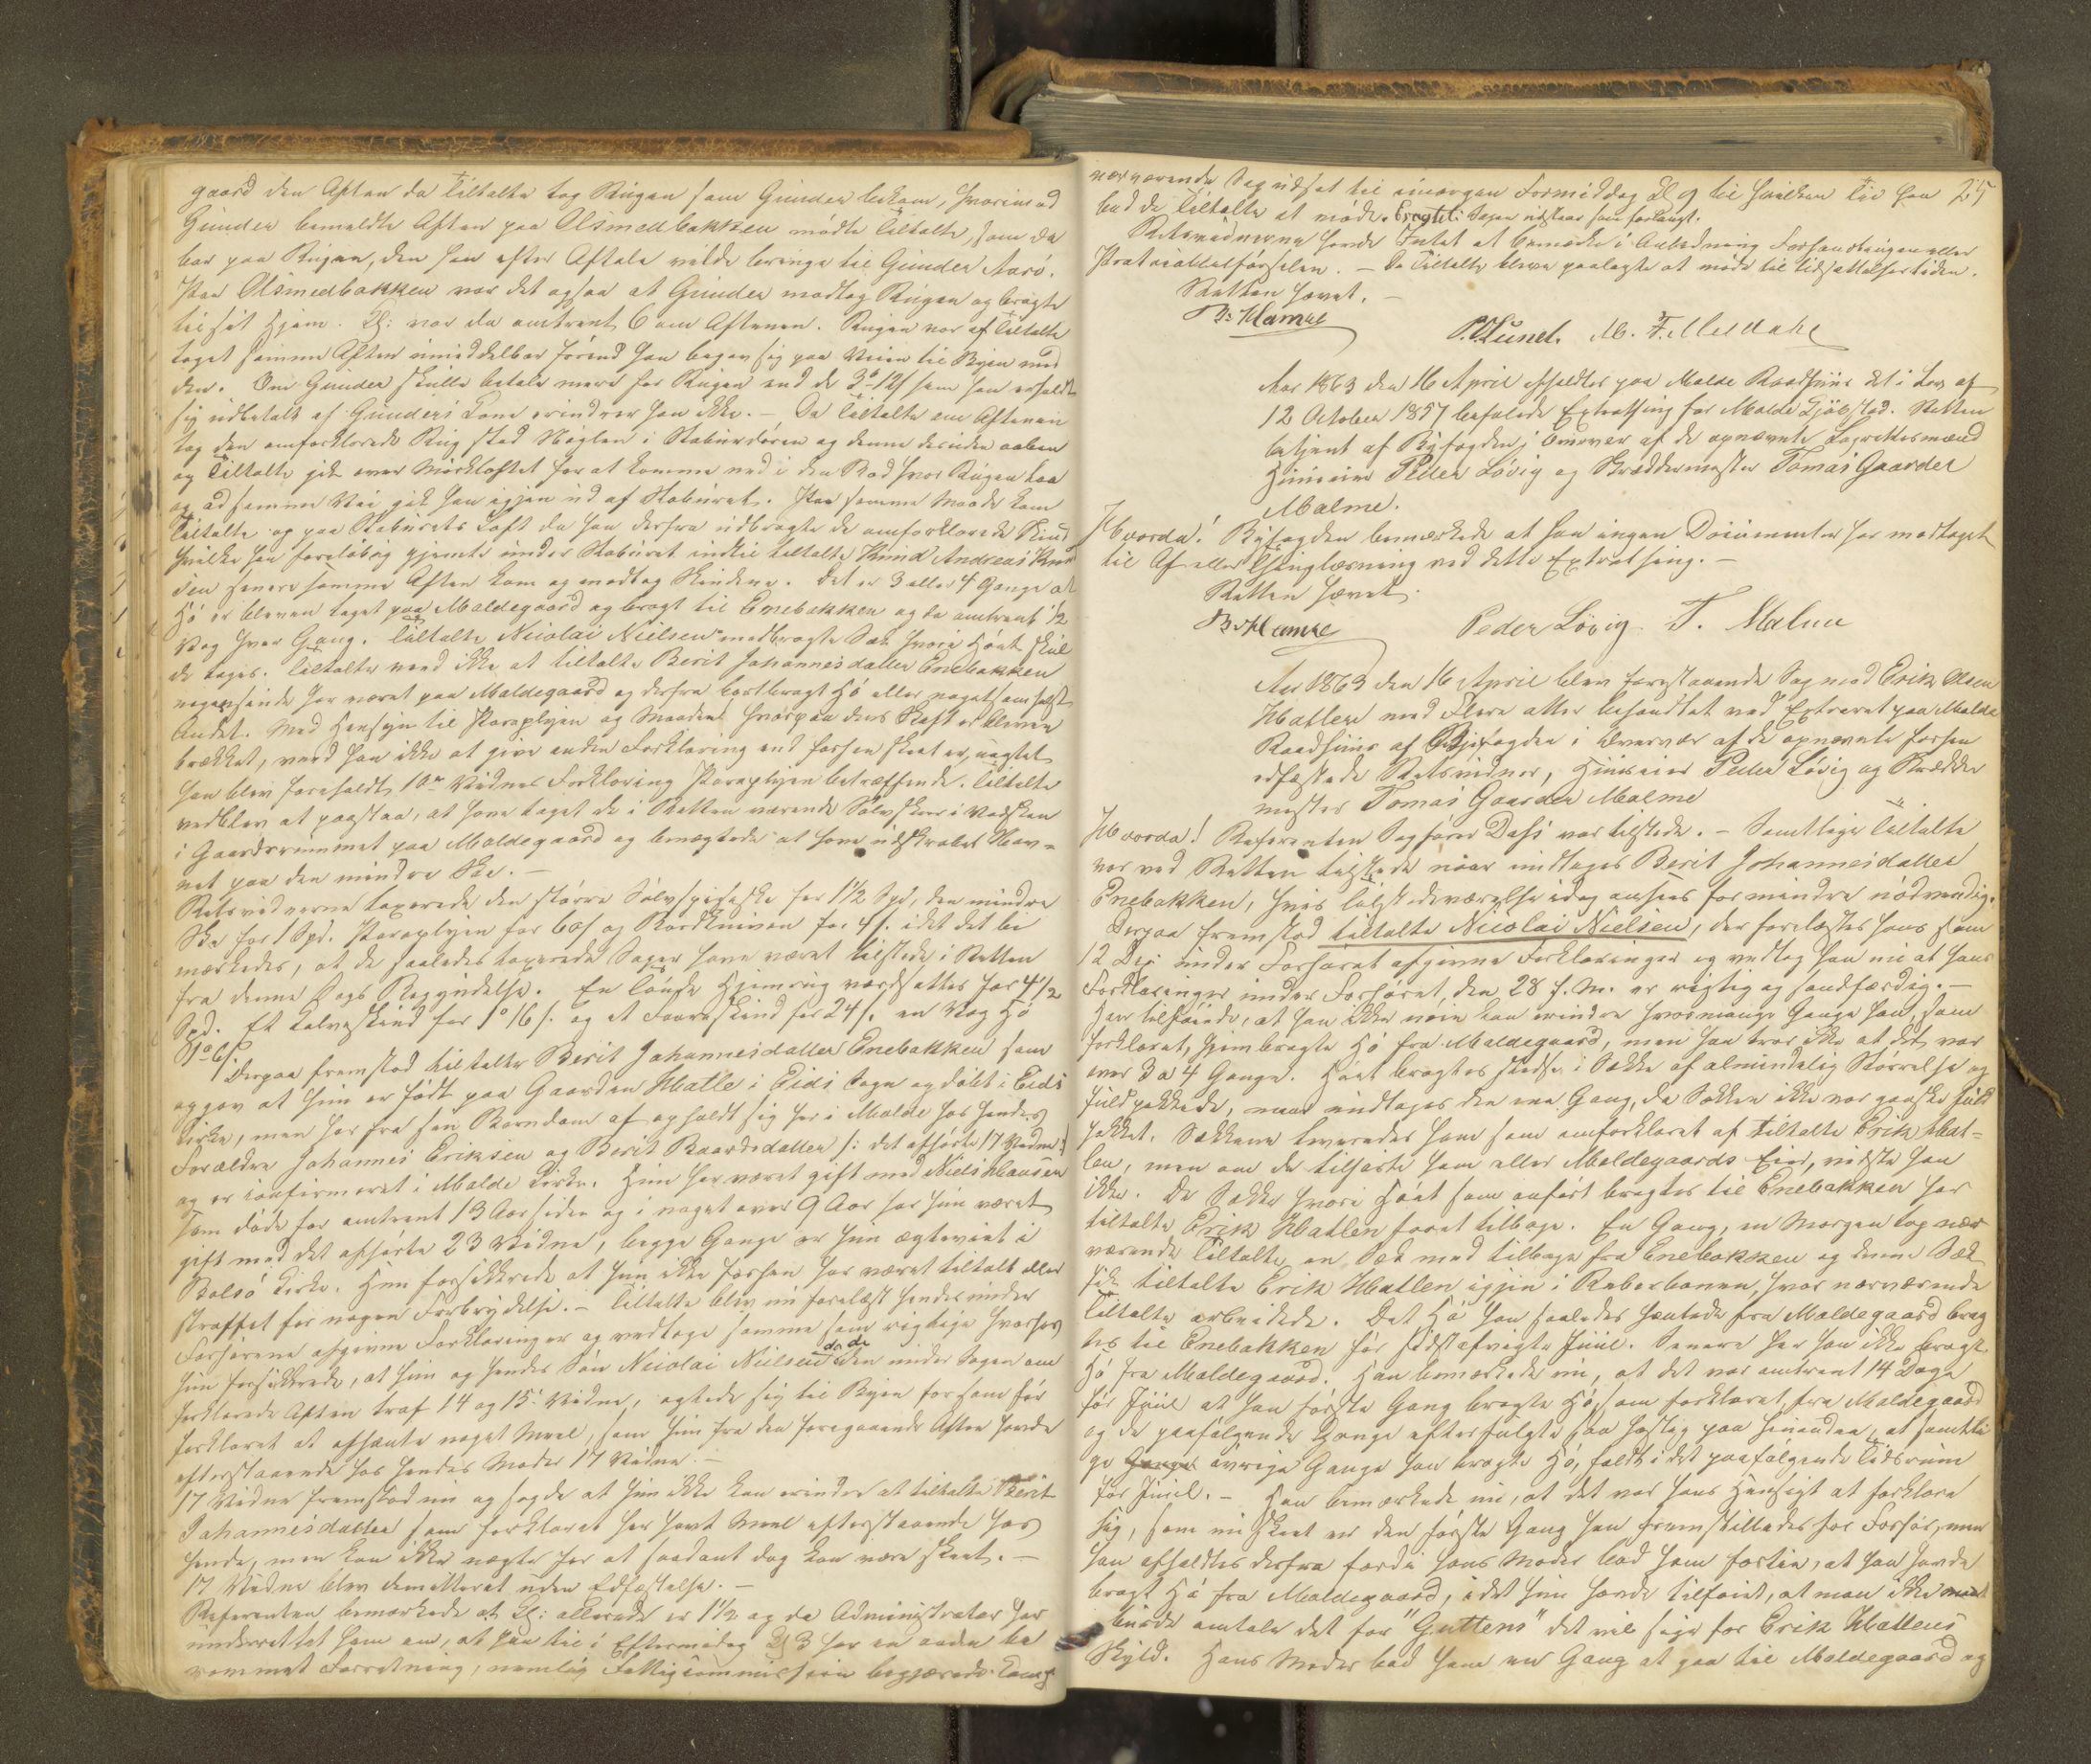 gaard den Aften da Tiltalte tog Rugen som Gunder bekom, hvorimod
Gunder bemeldte Aften paa Olsmedbakken mødte Tiltalte, som da
bar paa Rugen, den han efter Aftale vilde bringe til Gunder Aarö.
Paa Olsmedbakken var det ogsaa at Gunder modtog Rugen og bragte
til sit Hjem. Kl: var da omtrent 6 om Aftenen. Rugen var af Tiltalte
taget samme Aften umiddelbar førend han begav sig paa Veien til Byen med
den. Om Gunder skulde betale mere for Rugen end de 3 12 s som han erholdt
sig udbetalt af Gunders Kone erindrer han ikke. – Da Tiltalte om Aftenen
tog den omforklarede Rug stod Nøglen i Staburdøren og denne desuden aaben
og Tiltalte gik over Mørkloftet for at komme ned i den Bod hvor Rugen laa
og ad samme Vei gik han igjen ud af Staburet. Paa samme Maade kom
Tiltalte og paa Staburets Loft da han derfra udbragte de omforklarede Skind
hvilke han foreløbig gjemte under Staburet indtil tiltalte Knud Andreas Knud
sen senere samme Aften kom og modtog Skindene. Det er 3 eller 4 Gange at
Hø er bleven taget paa Moldegaard og bragt til Enebakken og da omtrent 1/2
Vog hver Gang. Tiltalte Nicolai Nielsen medbragte Sæk hvori Høet skul
de tages. Tiltalte veed ikke at tiltalte Berit Johannesdatter Enebakken
nogensinde har været paa Moldegaard og derfra bortbragt Hø eller noget somhelst
Andet. Med Hensyn til Paraplyen og Maaden hvorpaa dens Skaft er bleven
brækket, veed han ikke at give anden Forklaring end forhen skeet er, uagtet
han blev foreholdt 10de Vidnes Forklaring Paraplyen betræffende. Tiltalte
vedblev at paastaa, at have taget de i Retten værende Sølvskeer i Vadsken
i Gaardsrummet paa Moldegaard og benægtede at have udskrabet Nav-
net paa den mindre Ske. –
Retsvidnerne taxerede den større Sølvspiseske for 1 1/2 Spd, den mindre
Ske for 1 Spd. Paraplyen for 60 s og Bordkniven for 4 s. idet det be
mærkedes, at de saaledes taxerede Sager have været tilstede i Retten
fra denne Sags Begyndelse. En Tønde Hjemrug værdsattes for 4 1/2
Spd. Et Kalveskind for 1 16 s. og et Faareskind for 24 s. en Vog Hø
Derpaa fremstod tiltalte Berit Johannesdatter Enebakken som
opgav at hun er født paa Gaarden Hatle i Eids Sogn og døbt i Eids
Kirke, men har fra sin Barndom af opholdt sig her i Molde hos hendes
Forældre Johannes Eriksen og Berit Baardsdatter /: det afhørte 17 Vidne :/
og er confirmeret i Molde Kirke. Hun har været gift med Niels Hansen
som døde for omtrent 13 Aar siden og i noget over 9 Aar har hun været
gift med det afhørte 23 Vidne, begge Gange er hun ægteviet i
Bolsö Kirke. Hun forsikkrede at hun ikke forhen har været tiltalt eller
straffet for nogen Forbrydelse. – Tiltalte blev nu forelæst hendes under
Forhørene afgivne Forklaringer og vedtoge samme som rigtige hvorhos
hun forsikkrede, at hun og hendes Søn Nicolai Nielsen da de den under Sagen om
forklarede Aften traf 14 og 15. Vidne, agtede sig til Byen for som før
forklaret at afhente noget Meel, som hun fra den foregaaende Aften havde
efterstaaende hos hendes Moder 17 Vidne. –
17 Vidne fremstod nu og sagde at hun ikke kan erindre at tiltalte Berit
Johannesdatter som forklaret har havt Meel efterstaaende hos
hende, men kan ikke nægte for at saadant dog kan være skeet. –
17 Vidne blev demitteret uden Edfæstelse. –
Referenten bemærkede at Kl: allerede er 1 1/2 og da Administrator har
underrettet ham om, at han til i Eftermidag Kl 3 har en anden be
rammet Forretning, nemlig Fattigcommission begjærede han
nærværende Sag udsat til imorgen Formiddag Kl 9 til hvilken Tid han 25
bad de Tiltalte at møde. Eragtet: Sagen udstaar som forlangt.
Retsvidnerne havde Intet at bemærke i Anledning Forhandlingen eller
Protocollationførselen. – De Tiltalte bleve paalagte at møde til Udsættelsestiden.
Retten hævet. –
B: Hamre
P. O. Lunel. M. F. Meldahl
Aar 1863 den 16 April afholdtes paa Molde Raadhuus det i Lov af
12 October 1857 befalede Extrathing for Molde Kjøbstad. Retten
betjent af Byfogden i Overvær af de opnævnte Lagrettesmænd
Huuseier Peder Lövig og Skræddermester Tomas Gaarder
Malme.
Hvorda! Byfogden bemærkede at han ingen Documenter har modtaget
til Af- eller Thinglæsning ved dette Extrathing. –
Retten hævet.
B. Hamre
Peder Lövig T. Malme
Aar 1863 den 16 April blev forestaaende Sag mod Erik Olsen
Hatlen med Flere atter behandlet ved Extraret paa Molde
Raadhuus af Byfogden i Overvær af de opnævnte forhen
edfæstede Retsvidner, Huuseier Peder Lövig og Skrædder
mester Tomas Gaarder Malme
Hvorda! Referenten Sagfører Dahl var tilstede. – Samtlige Tiltalte
var ved Retten tilstede naar undtages Berit Johannesdatter
Enebakken, hvis Tilstedeværelse idag ansees for mindre nødvendig.
Derpaa fremstod tiltalte Nicolai Nielsen, der forelæstes hans den
12 Dg. under Forhøret afgivne Forklaringer og vedtog han nu at hans
Forklaringer under Forhøret den 28 f. M. er rigtig og sandfærdig. –
Han tilføiede, at han ikke nøie kan erindre hvormange Gange han, som
forklaret, hjembragte Hø fra Moldegaard, men han tror ikke at det var
over 3 a 4 Gange. Høet bragtes stedse i Sække af almindelig Størrelse og
fuldpakkede, naar undtages den ene Gang, da Sækken ikke var ganske fuld
pakket. Sækkene leveredes ham som omforklaret af tiltalte Erik Hat-
len, men om de tilhørte ham eller Moldegaards Eier, vidste han
ikke. De Sække hvori Høet som anført bragtes til Enebakken har
tiltalte Erik Hatlen faaet tilbage. En Gang, en Morgen tog nær
værende Tiltalte en Sæk med tilbage fra Enebakken og denne Sæk
fik tiltalte Erik Hatlen igjen i Reberbanen, hvor nærværende
Tiltalte arbeidede. Det Hø han saaledes hentede fra Moldegaard brag
tes til Enebakken før sidstafvigte Juul. Senere har han ikke bragt
Hø fra Moldegaard. Han bemærkede nu, at det var omtrent 14 Dage
før Juul at han første Gang bragte Hø, som forklaret, fra Moldegaard
og de paafølgende Gange efterfulgte saa hastig paa hinanden, at samtli
ge øvrige Gange han bragte Hø, faldt i det paafølgende Tidsrum
før Juul. – Han bemærkede nu, at det var hans Hensigt at forklare
sig, som nu skeet er den første Gang han fremstilledes for Forhør, men
han afholdtes derfra fordi hans Moder bad ham fortie, at han havde
bragt Hø fra Moldegaard, idet hun havde tilføiet, at man ikke
burde omtale det for "Guttens" det vil sige for Erik Hatlens
Skyld. Hans Moder bad ham een Gang at gaa til Moldegaard og